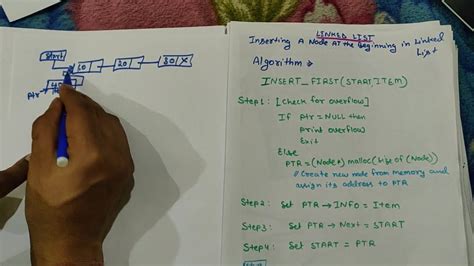 Start
10
20
30 X
Ptr
LINKED LIST
Inserting A Node At the Beginning in Linked
List
Algorithm
INSERT_FIRST(START,ITEM)
Step1: [Check for overflow]
If Ptr=NULL then
print overflow
Exit
Else
PTR=(Node*)malloc(size of(Node))
// Create new node from memory and
assign its address to PTR
Step2: Set PTR→INFO=Item
Step3: Set PTR→Next=START
Step4: Set START=PTR